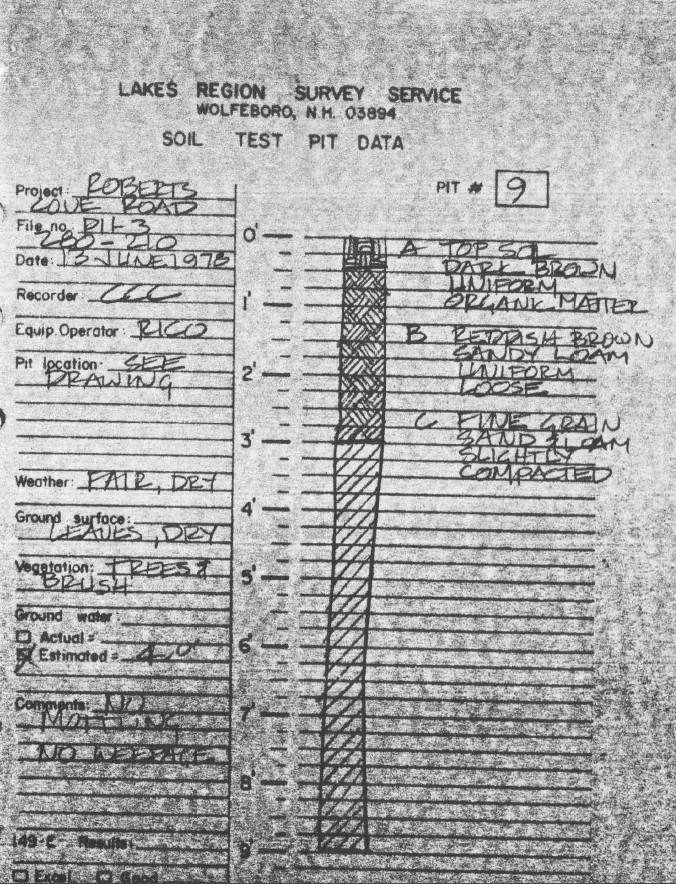 LAKES REGION SURVEY SERVICE
WOLFEBORO, N.H. 03894
SOIL TEST PIT DATA
PIT # 9
Project: ROBERTS
COVE ROAD
File no. D11-3
280-210
Date: 13 JUNE 1978
Recorder: CCC
Equip. Operator: RICO
Pit location: SEE
DRAWING
Weather: FAIR, DRY
Ground surface:
LEAVES, DRY
Vegetation: TREES &
BRUSH
Ground water:
Actual =
Estimated = 4.0'
Comments: NO
MOTTLING
NO WEEPAGE
149-E Results:
Excel. Good
0'
1'
2'
3'
4'
5'
6'
7'
8'
9'
A TOP SOIL
DARK BROWN
UNIFORM
ORGANIC MATTER
B REDDISH BROWN
SANDY LOAM
UNIFORM
LOOSE
C FINE GRAIN
SAND & LOAM
SLIGHTLY
COMPACTED